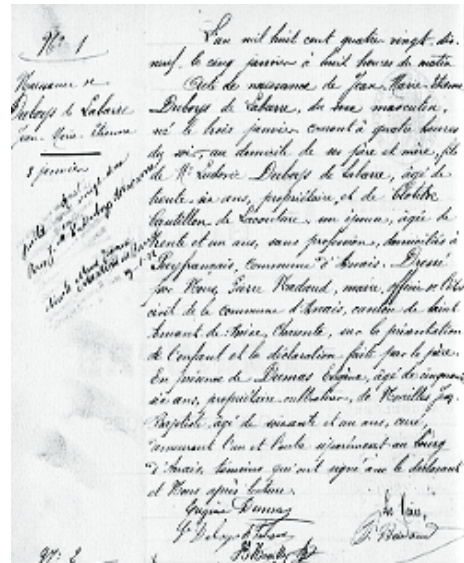 N° 1
Naissance de
Duboys de Labarre
Jean Marie Etienne
3 janvier
L'an mil huit cent quatre vingt dix
neuf, le cinq janvier à huit heures du matin
Acte de naissance de Jean-Marie-Etienne
Duboys de Labarre, du sexe masculin,
né le trois janvier courant à quatre heures
du soir, au domicile de ses père et mère, fils
de Mr Ludovic Duboys de Labarre, âgé de
trente six ans, propriétaire, et de Clotilde
de Lacouture, son épouse, âgée de
trente et un ans, sans profession, domiciliés à
Puyfrançais, commune d'Anais. Dressé
par Nous, Pierre Nadaud, maire, officier de l'Etat
civil de la commune d'Anais, canton de Saint
Amant de Boixe, Charente, sur la présentation
de l'enfant et la déclaration faite par le père.
En présence de Dumas Eugène, âgé de cinquante
six ans, propriétaire cultivateur, de Jean
Baptiste, âgé de soixante et un ans, curé,
demeurant l'un et l'autre séparément au bourg
d'Anais, témoins qui ont signé avec le déclarant
et Nous après lecture.
Eugène Dumas
Le Maire,